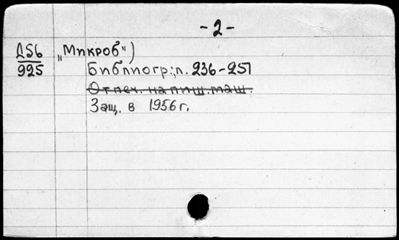 - 2 -
Д56 „Микроб")
925 Библиогр.: л. 236-251
Отпеч. на пиш. маш.
Защ. в 1956 г.